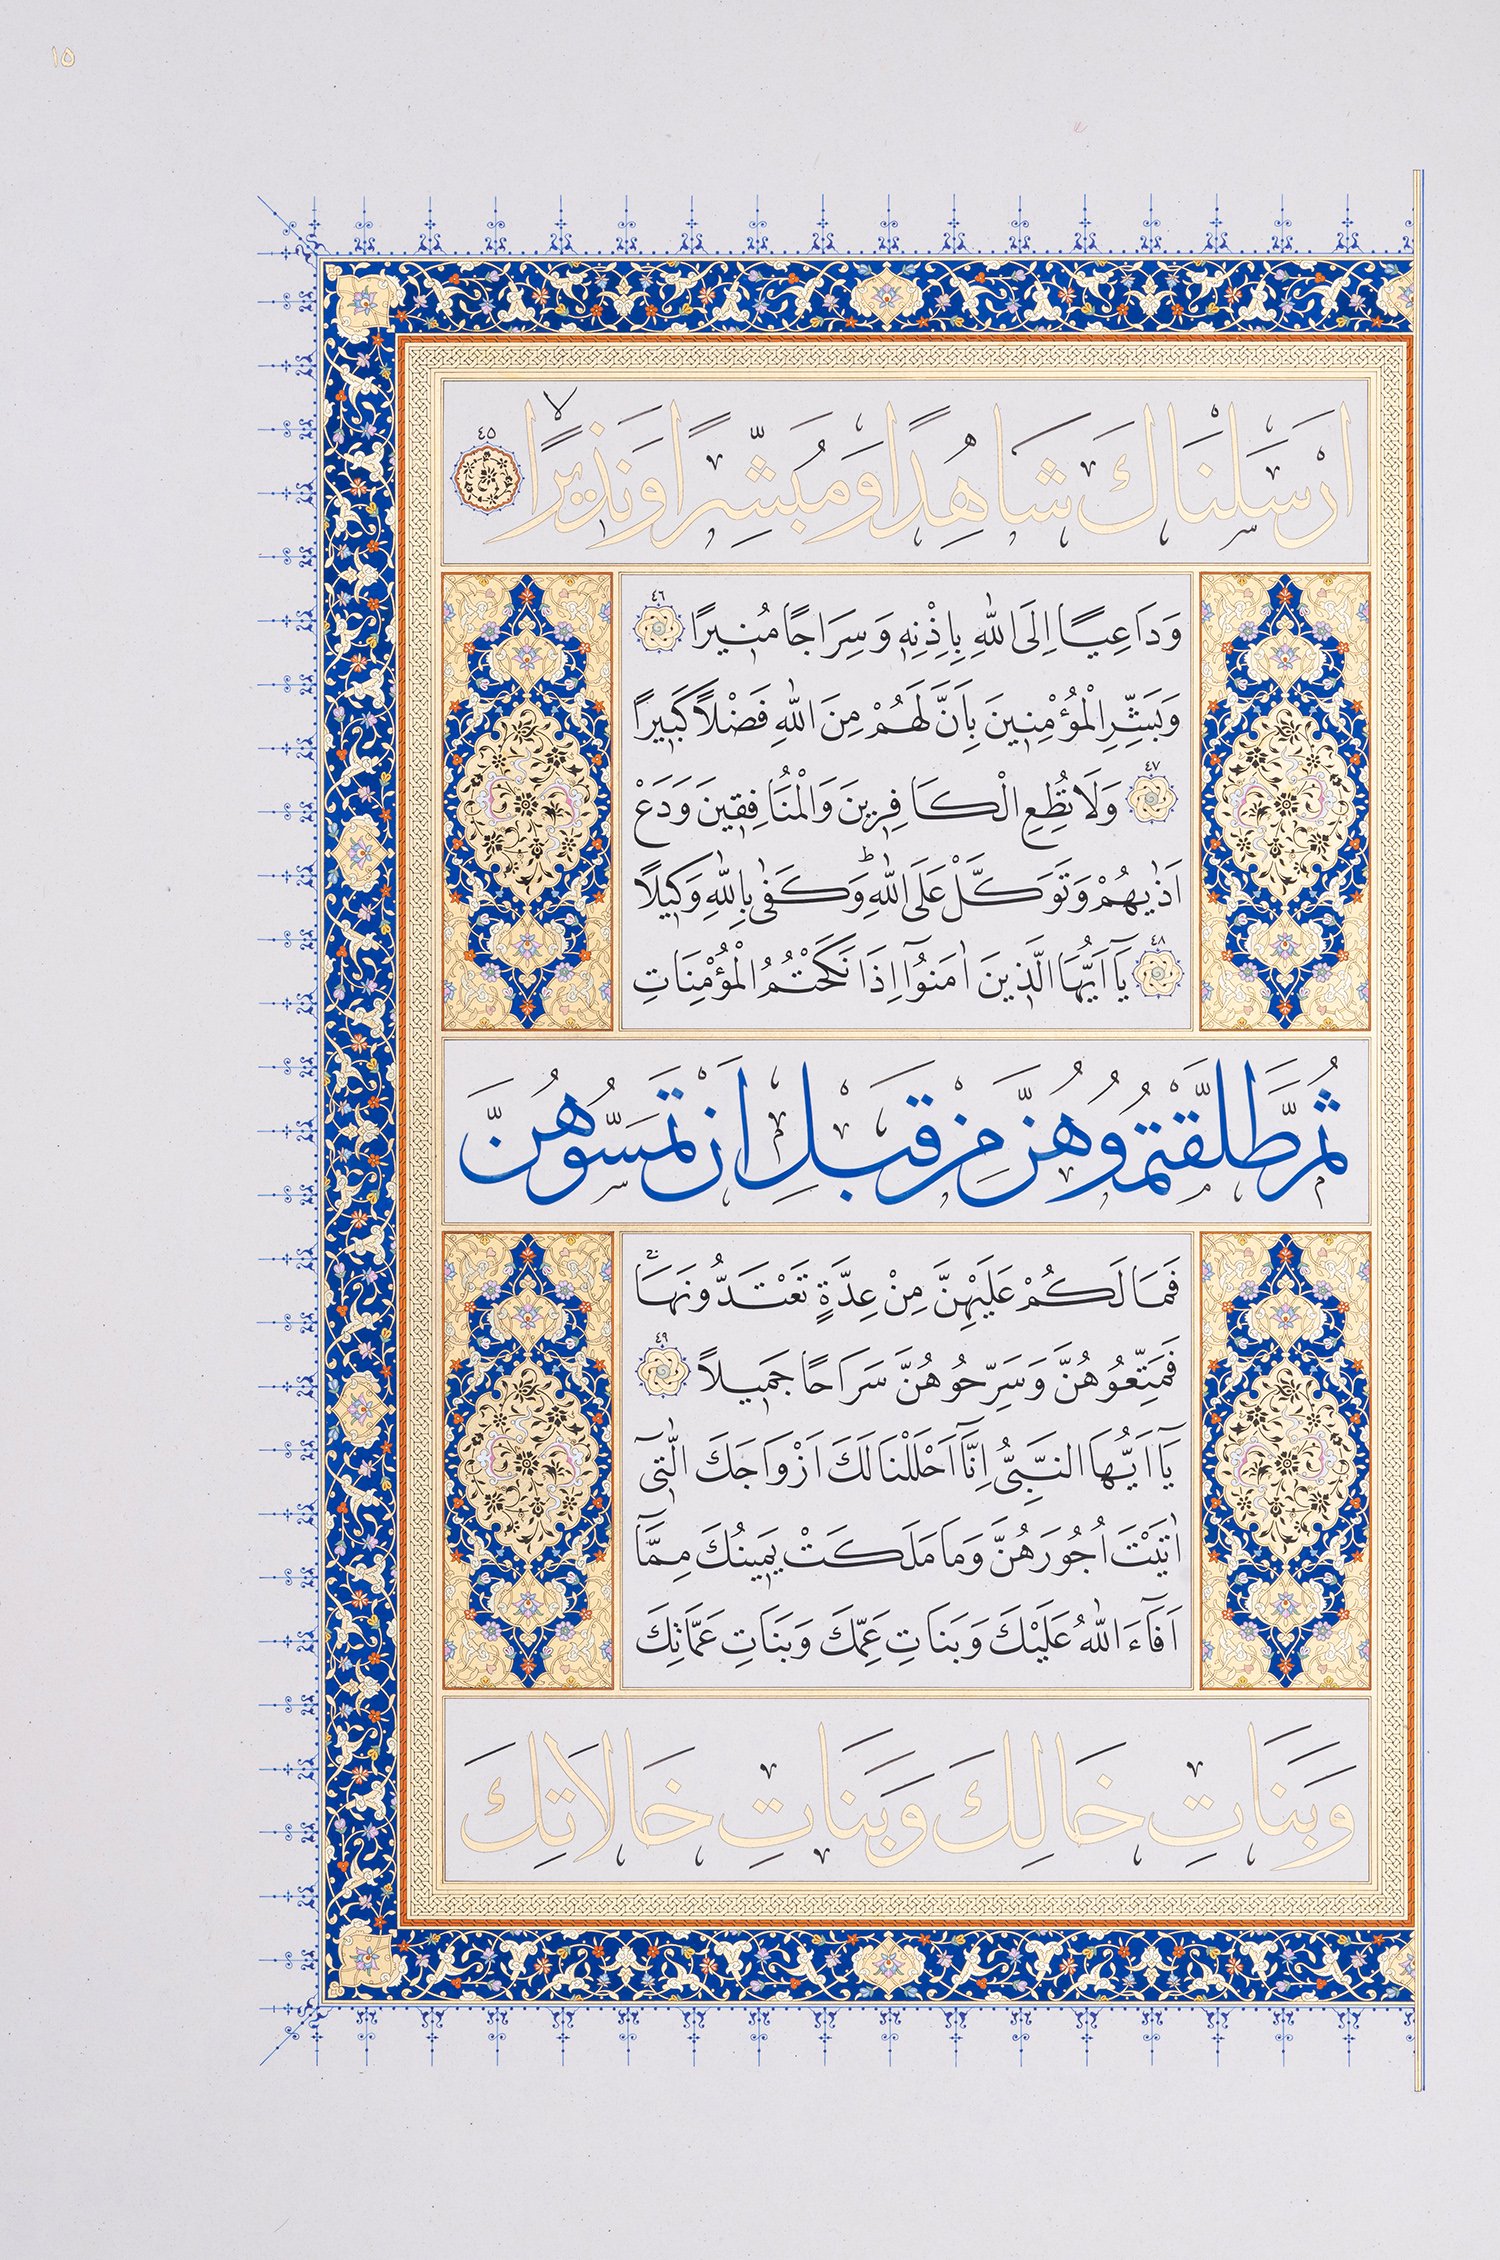 ١٥
اَرْسَلْنَاكَ شَاهِدًا وَمُبَشِّرًا وَنَذِيرًاۙ ٤٥
وَدَاعِيًا اِلَى اللّٰهِ بِاِذْنِهٖ وَسِرَاجًا مُنِيرًا ٤٦
وَبَشِّرِ الْمُؤْمِنِينَ بِاَنَّ لَهُمْ مِنَ اللّٰهِ فَضْلًا كَبِيرًا
٤٧ وَلَا تُطِعِ الْكَافِرِينَ وَالْمُنَافِقِينَ وَدَعْ
اَذٰيهُمْ وَتَوَكَّلْ عَلَى اللّٰهِؕ وَكَفٰى بِاللّٰهِ وَكِيلًا
٤٨ يَٓا اَيُّهَا الَّذِينَ اٰمَنُٓوا اِذَا نَكَحْتُمُ الْمُؤْمِنَاتِ
ثُمَّ طَلَّقْتُمُوهُنَّ مِنْ قَبْلِ اَنْ تَمَسُّوهُنَّ
فَمَا لَكُمْ عَلَيْهِنَّ مِنْ عِدَّةٍ تَعْتَدُّونَهَاۚ
فَمَتِّعُوهُنَّ وَسَرِّحُوهُنَّ سَرَاحًا جَمِيلًا ٤٩
يَٓا اَيُّهَا النَّبِيُّ اِنَّٓا اَحْلَلْنَا لَكَ اَزْوَاجَكَ الّٰتِٓى
اٰتَيْتَ اُجُورَهُنَّ وَمَا مَلَكَتْ يَمِينُكَ مِمَّٓا
اَفَٓاءَ اللّٰهُ عَلَيْكَ وَبَنَاتِ عَمِّكَ وَبَنَاتِ عَمَّاتِكَ
وَبَنَاتِ خَالِكَ وَبَنَاتِ خَالَاتِكَ